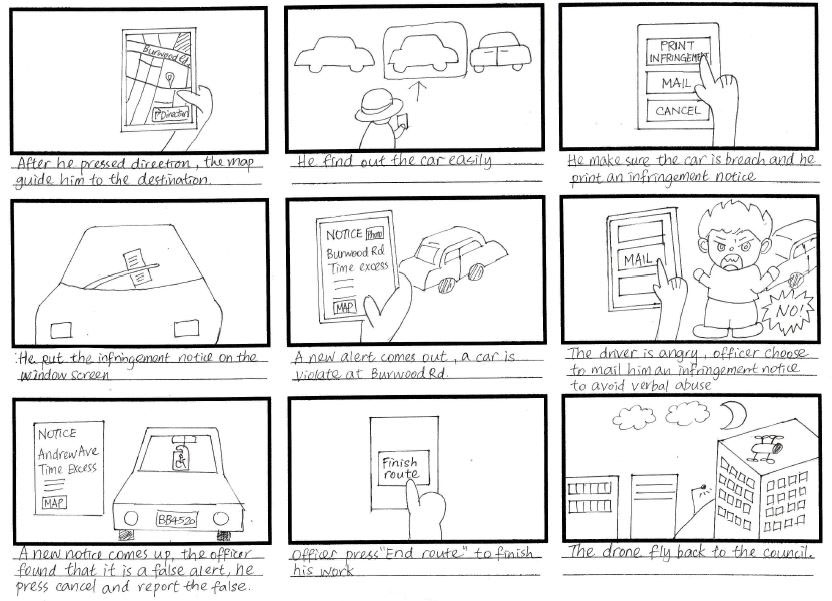 Burwood Rd
Direction
After he pressed direetion, the map
guide him to the destination.
He find out the car easily
PRINT
INFRINGEMENT
MAIL
CANCEL
He make sure the car is breach and he
print an infringement notice
He put the infringement notice on the
window screen
NOTICE Photo
Burwood Rd
Time excess
MAP
A new alert comes out, a car is
violate at Burwood Rd.
MAIL
NO!
The driver is angry, officer choose
to mail him an infringement notice
to avoid verbal abuse
NOTICE
Andrew Ave
Time Excess
MAP
BB4520
A new notice comes up, the officer
found that it is a false alert, he
press cancel and report the false.
Finish
route
Officer press "End route" to finish
his work
The drone fly back to the council.